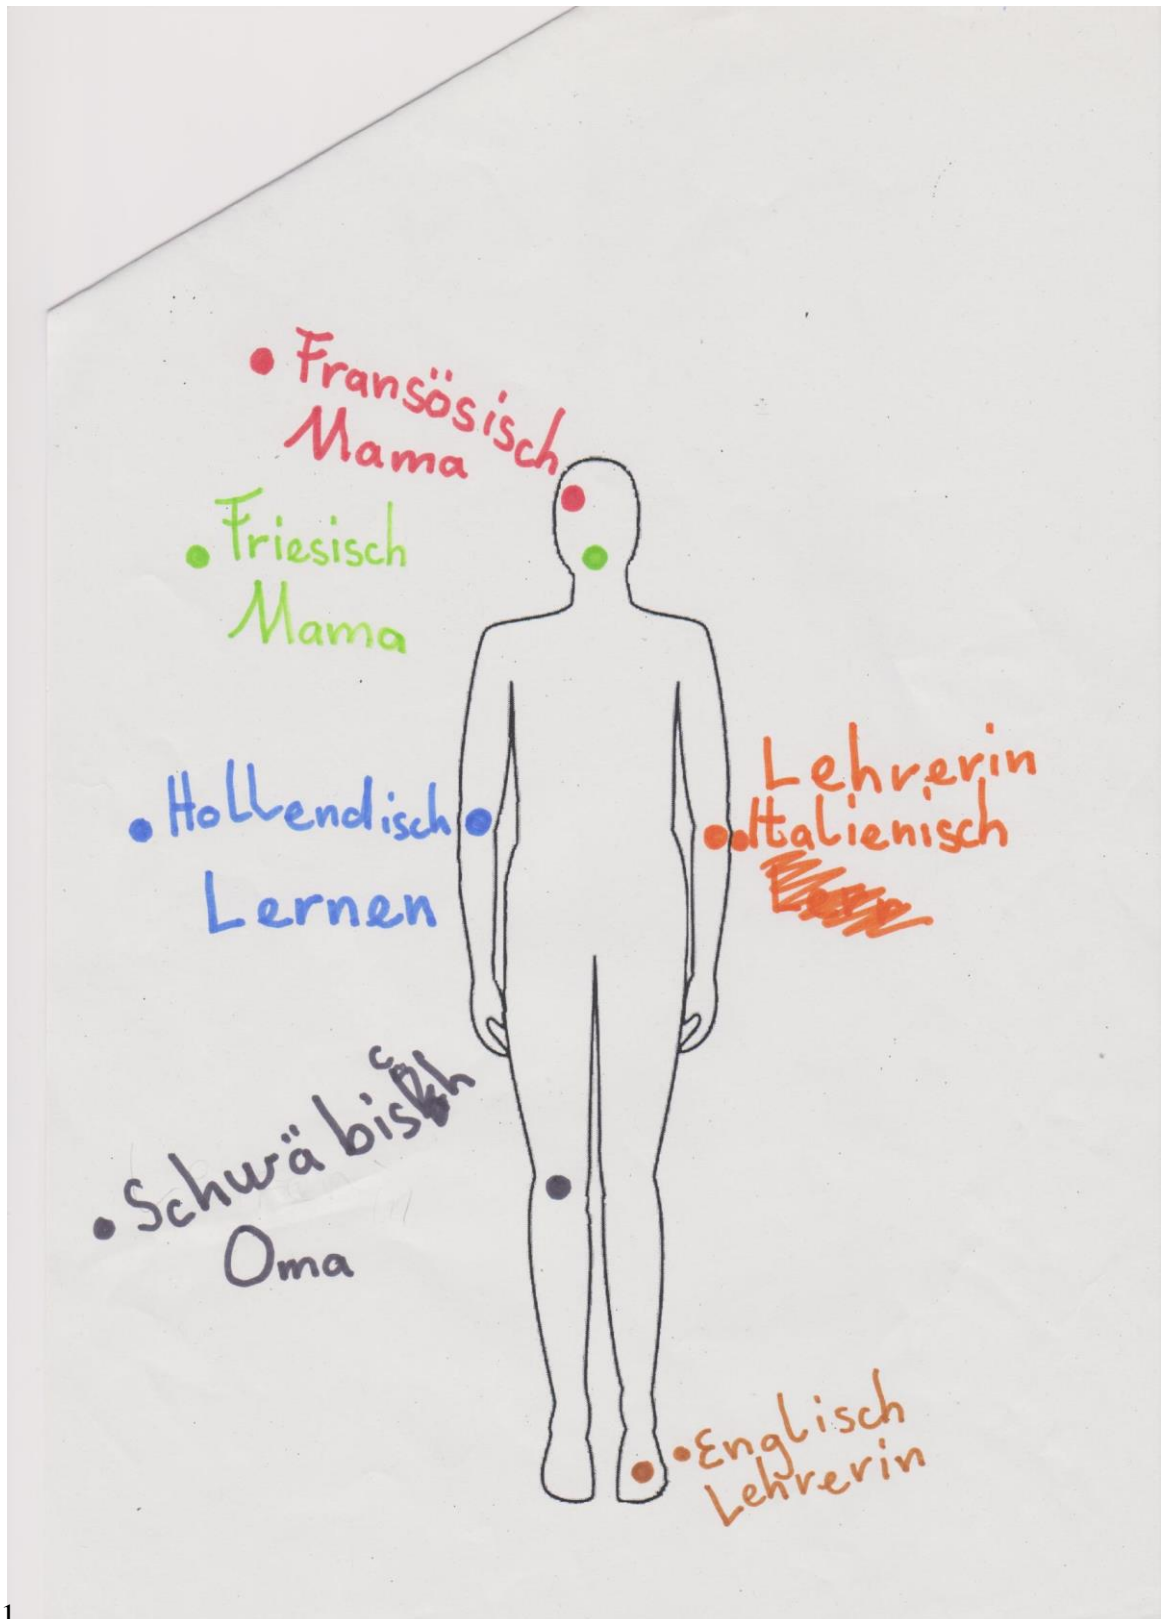 Fransösisch
Mama
Friesisch
Mama
Hollendisch
Lernen
Lehrerin
Italienisch
Schwäbisch
Oma
Englisch
Lehrerin
1